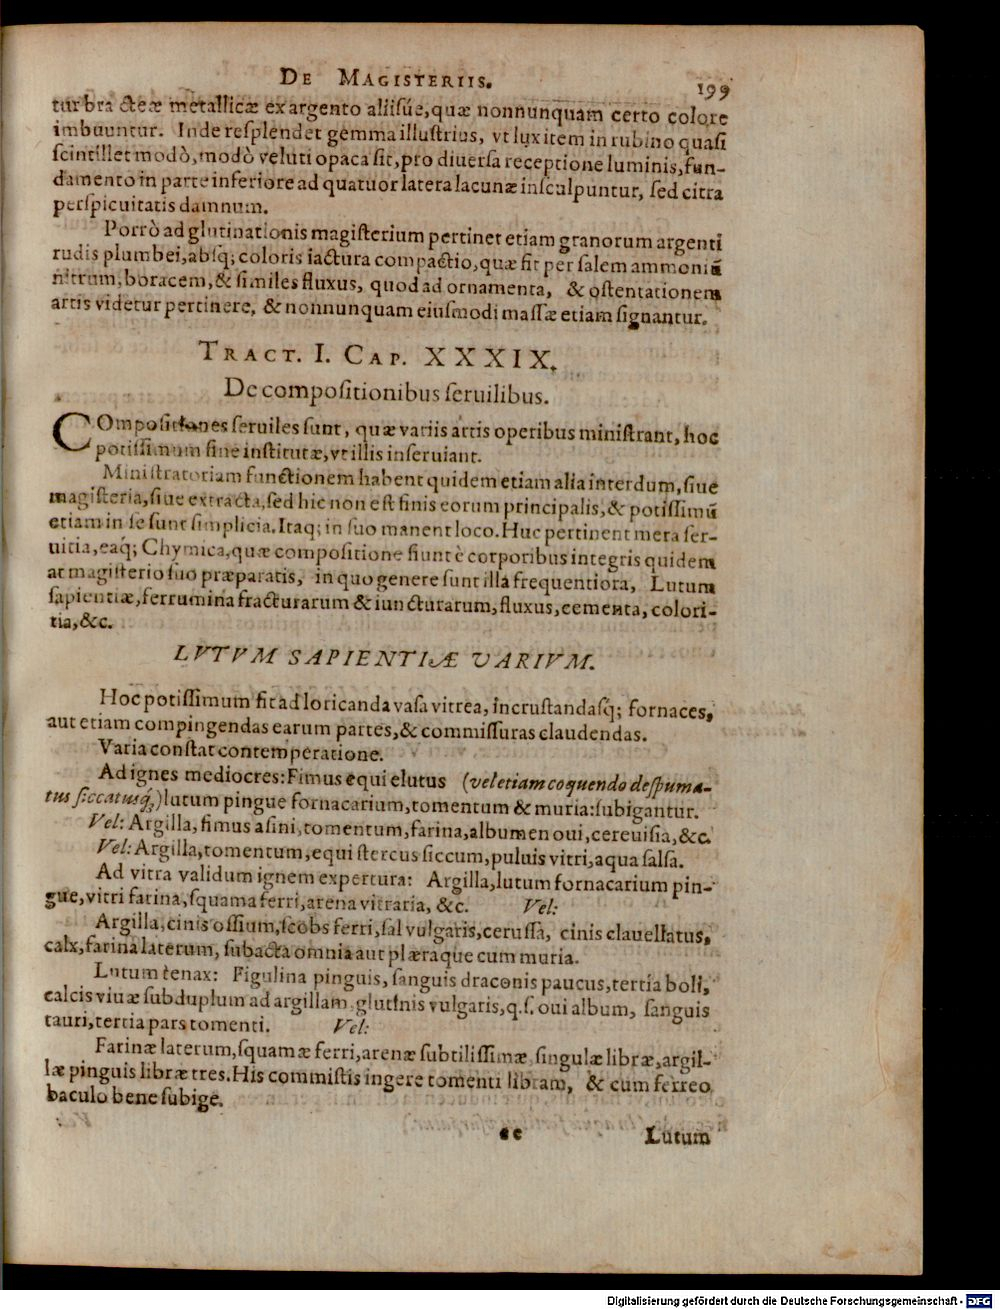 DE MAGISTERIIS. 199
tur bracteæ metallicæ ex argento aliisúe, quæ nonnunquam certo colore
imbuuntur. Inde resplendet gemma illustrius, vt lux item in rubino quasi
scintillet modò, modò veluti opaca sit, pro diuersa receptione luminis, fun-
damento in parte inferiore ad quatuor latera lacunæ insculpuntur, sed citra
perspicuitatis damnum.
Porrò ad glutinationis magisterium pertinet etiam granorum argenti
rudis plumbei, absq; coloris iactura compactio, quæ fit per salem ammoniū
nitrum, boracem, & similes fluxus, quod ad ornamenta, & ostentationem
artis videtur pertinere, & nonnunquam eiusmodi massæ etiam signantur.
TRACT. I. CAP. XXXIX.
De compositionibus seruilibus.
COmpositiones seruiles sunt, quæ variis artis operibus ministrant, hoc
potissimum fine institutæ, vt illis inseruiant.
Ministratoriam functionem habent quidem etiam alia interdum, siue
magisteria, siue extracta, sed hic non est finis eorum principalis, & potissimū
etiam in se sunt simplicia. Itaq; in suo manent loco. Huc pertinent mera ser-
uitia, eaq; Chymica, quæ compositione fiunt è corporibus integris quidem
at magisterio suo præparatis, in quo genere sunt illa frequentiora, Lutum
sapientiæ, ferrumina fracturarum & iuncturarum, fluxus, cementa, colori-
tia, &c.
LVTVM SAPIENTIÆ VARIVM.
Hoc potissimum fit ad loricanda vasa vitrea, incrustandasq; fornaces,
aut etiam compingendas earum partes, & commissuras claudendas.
Varia constat contemperatione.
Ad ignes mediocres: Fimus equi elutus (vel etiam coquendo despuma-
tus siccatusq́;) lutum pingue fornacarium, tomentum & muria: subigantur.
Vel: Argilla, fimus asini, tomentum, farina, albumen oui, cereuisia, &c.
Vel: Argilla, tomentum, equi stercus siccum, puluis vitri, aqua salsa.
Ad vitra validum ignem expertura: Argilla, lutum fornacarium pin-
gue, vitri farina, squama ferri, arena vitraria, &c. Vel:
Argilla, cinis ossium, scobs ferri, sal vulgaris, cerussa, cinis clauellatus,
calx, farina laterum, subacta omnia aut plæraque cum muria.
Lutum tenax: Figulina pinguis, sanguis draconis paucus, tertia boli,
calcis viuæ subduplum ad argillam, glutinis vulgaris, q. s. oui album, sanguis
tauri, tertia pars tomenti. Vel:
Farinæ laterum, squamæ ferri, arenæ subtilissimæ, singulæ libræ, argil-
læ pinguis libræ tres. His commistis ingere tomenti libram, & cum ferreo
baculo bene subige.
cc Lutum
Digitalisierung gefördert durch die Deutsche Forschungsgemeinschaft - DFG